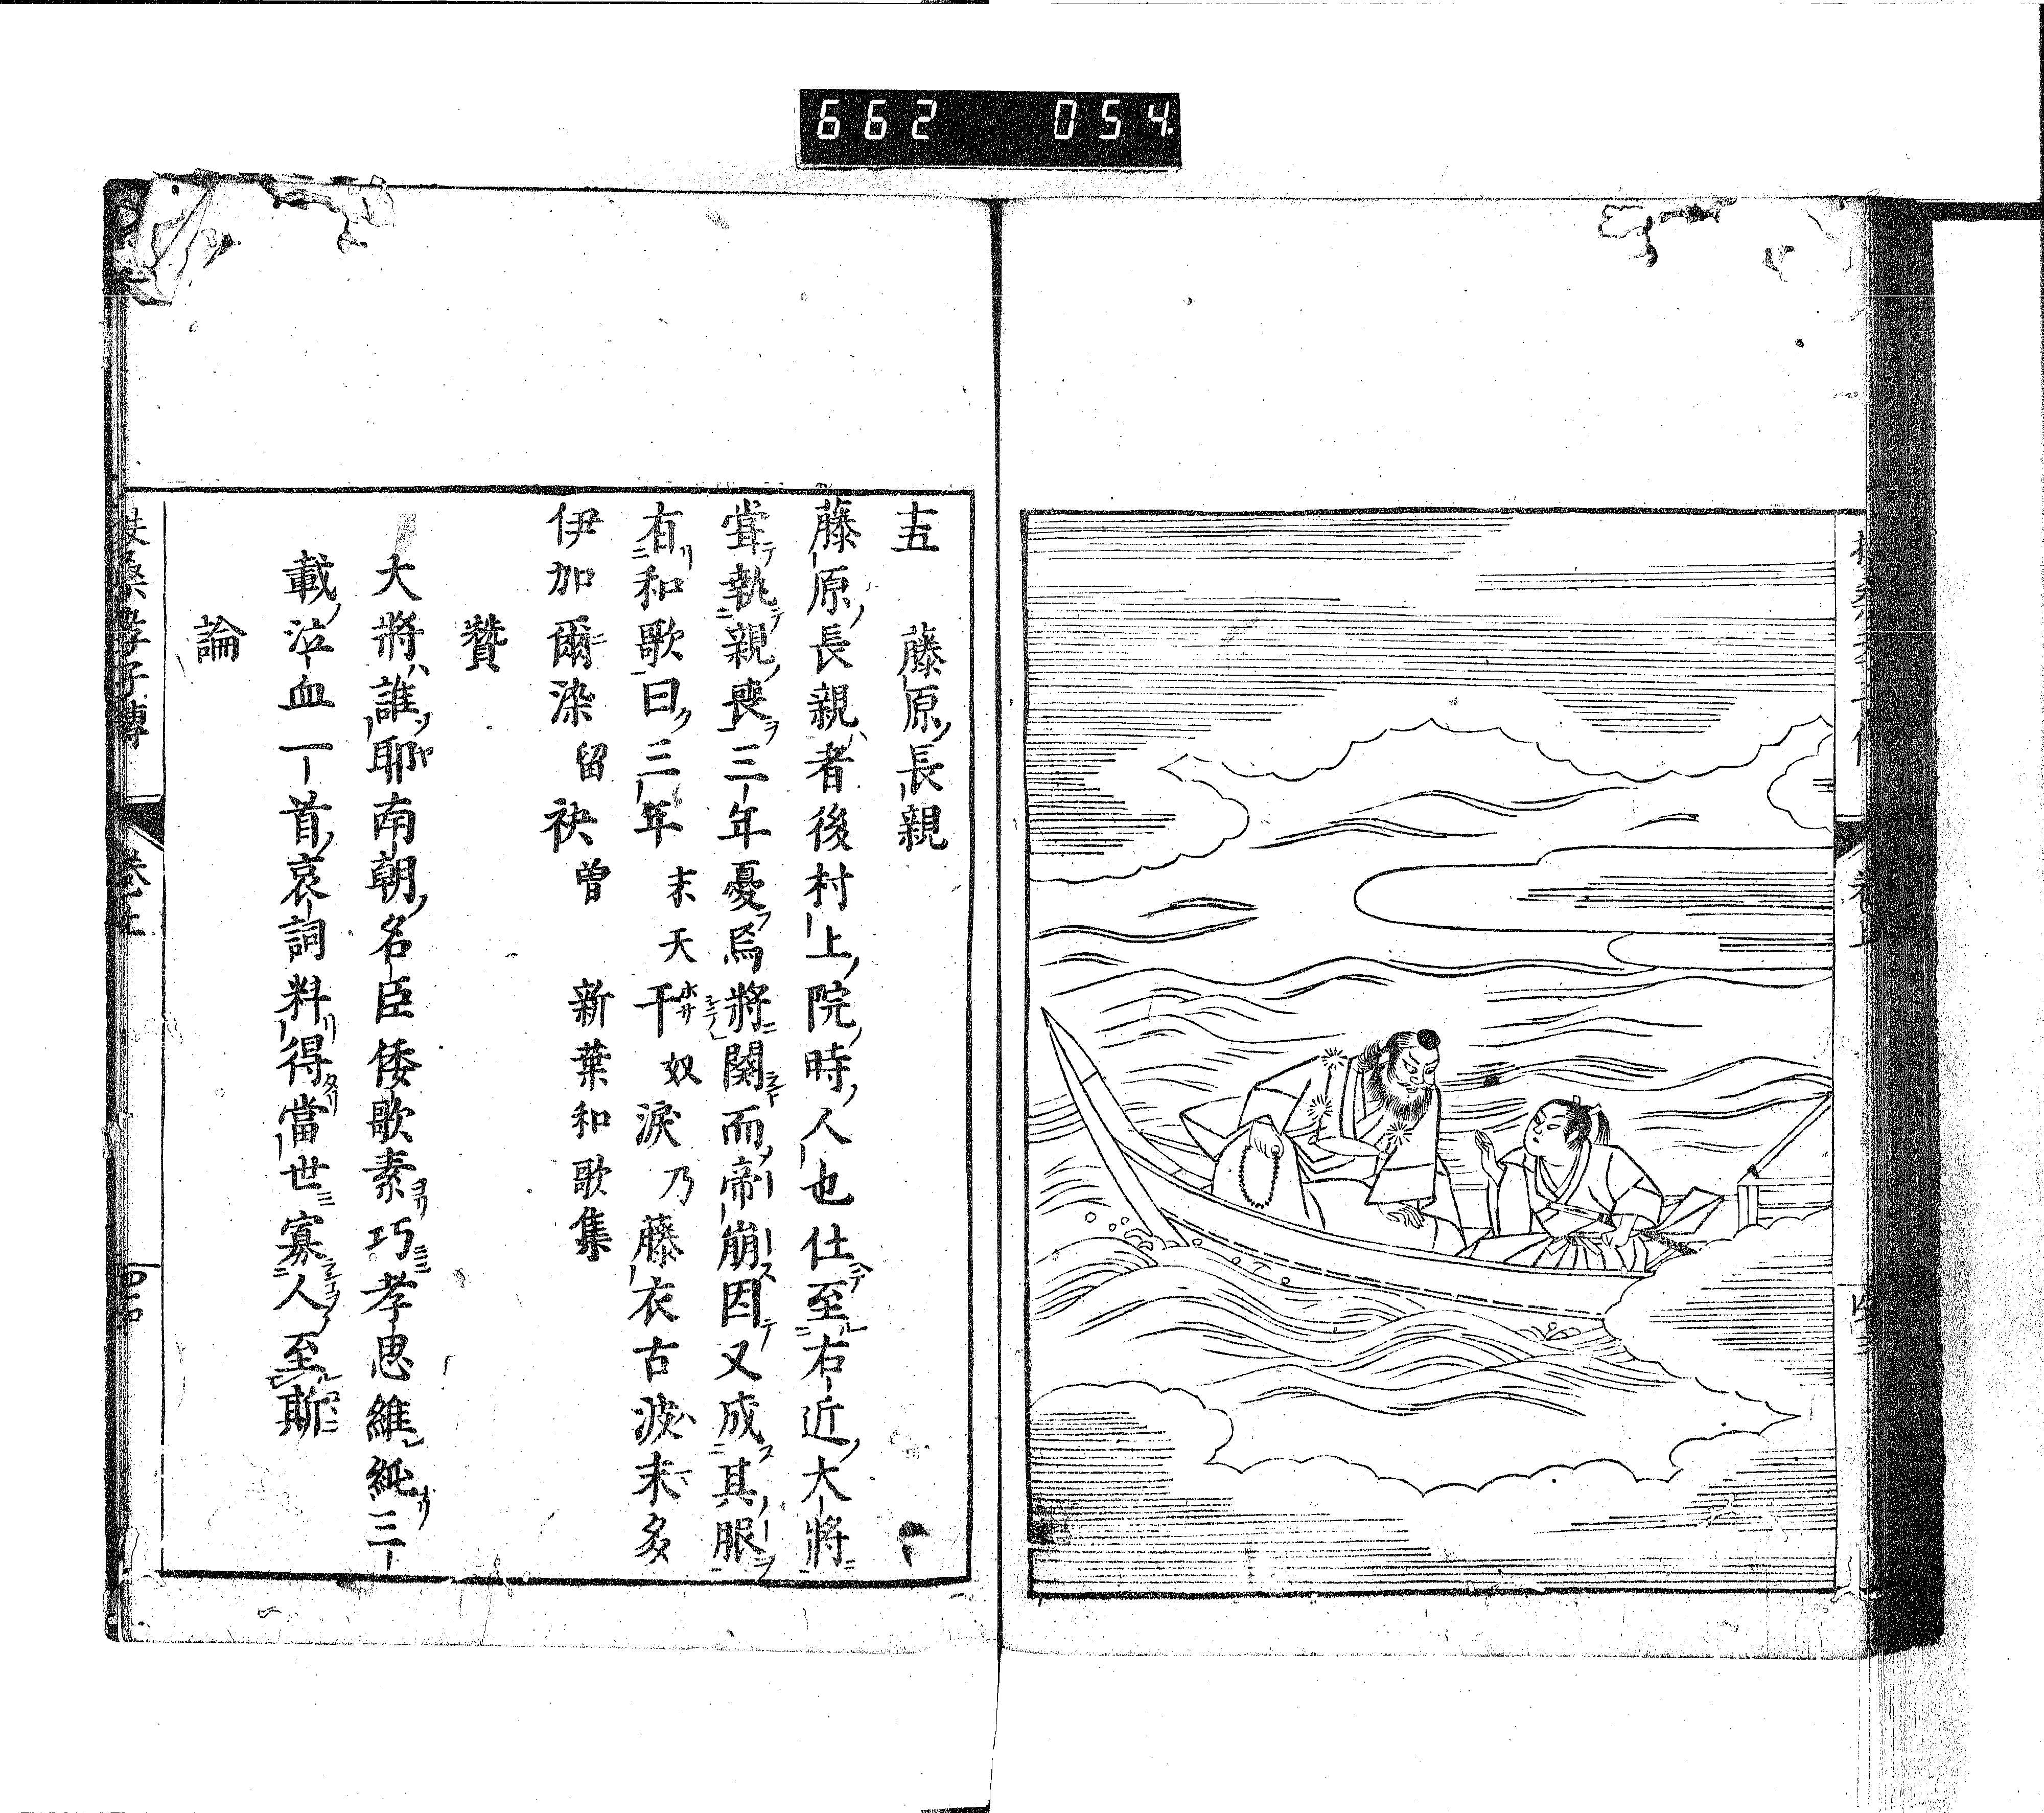 662 054
十五 藤原長親
藤原長親者後村上院時人也仕至右近大將
甞執親喪三年憂焉將闋而帝崩因又成其服
有和歌曰三年末天干奴淚乃藤衣古波末多
伊加爾染留袂曽 新葉和歌集
贊
大將誰耶南朝名臣倭歌素巧孝思維純三
載泣血一首哀詞料得當世寡人至斯
論
扶桑孝子傳 卷上